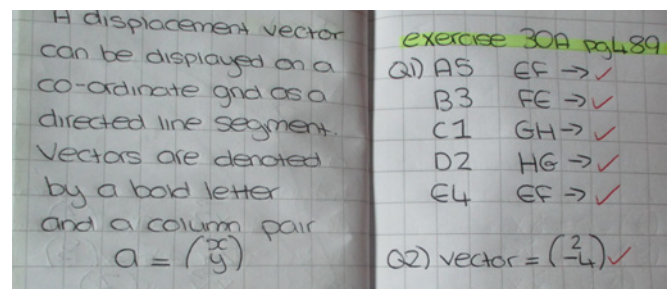 A displacement vector
can be displayed on a
co-ordinate grid as a
directed line segment.
Vectors are denoted
by a bold letter
and a column pair
a = (x y)
exercise 30A pg489
Q1) A5 EF → ✓
B3 FE → ✓
C1 GH → ✓
D2 HG → ✓
E4 EF → ✓
Q2) vector = (2 -4) ✓